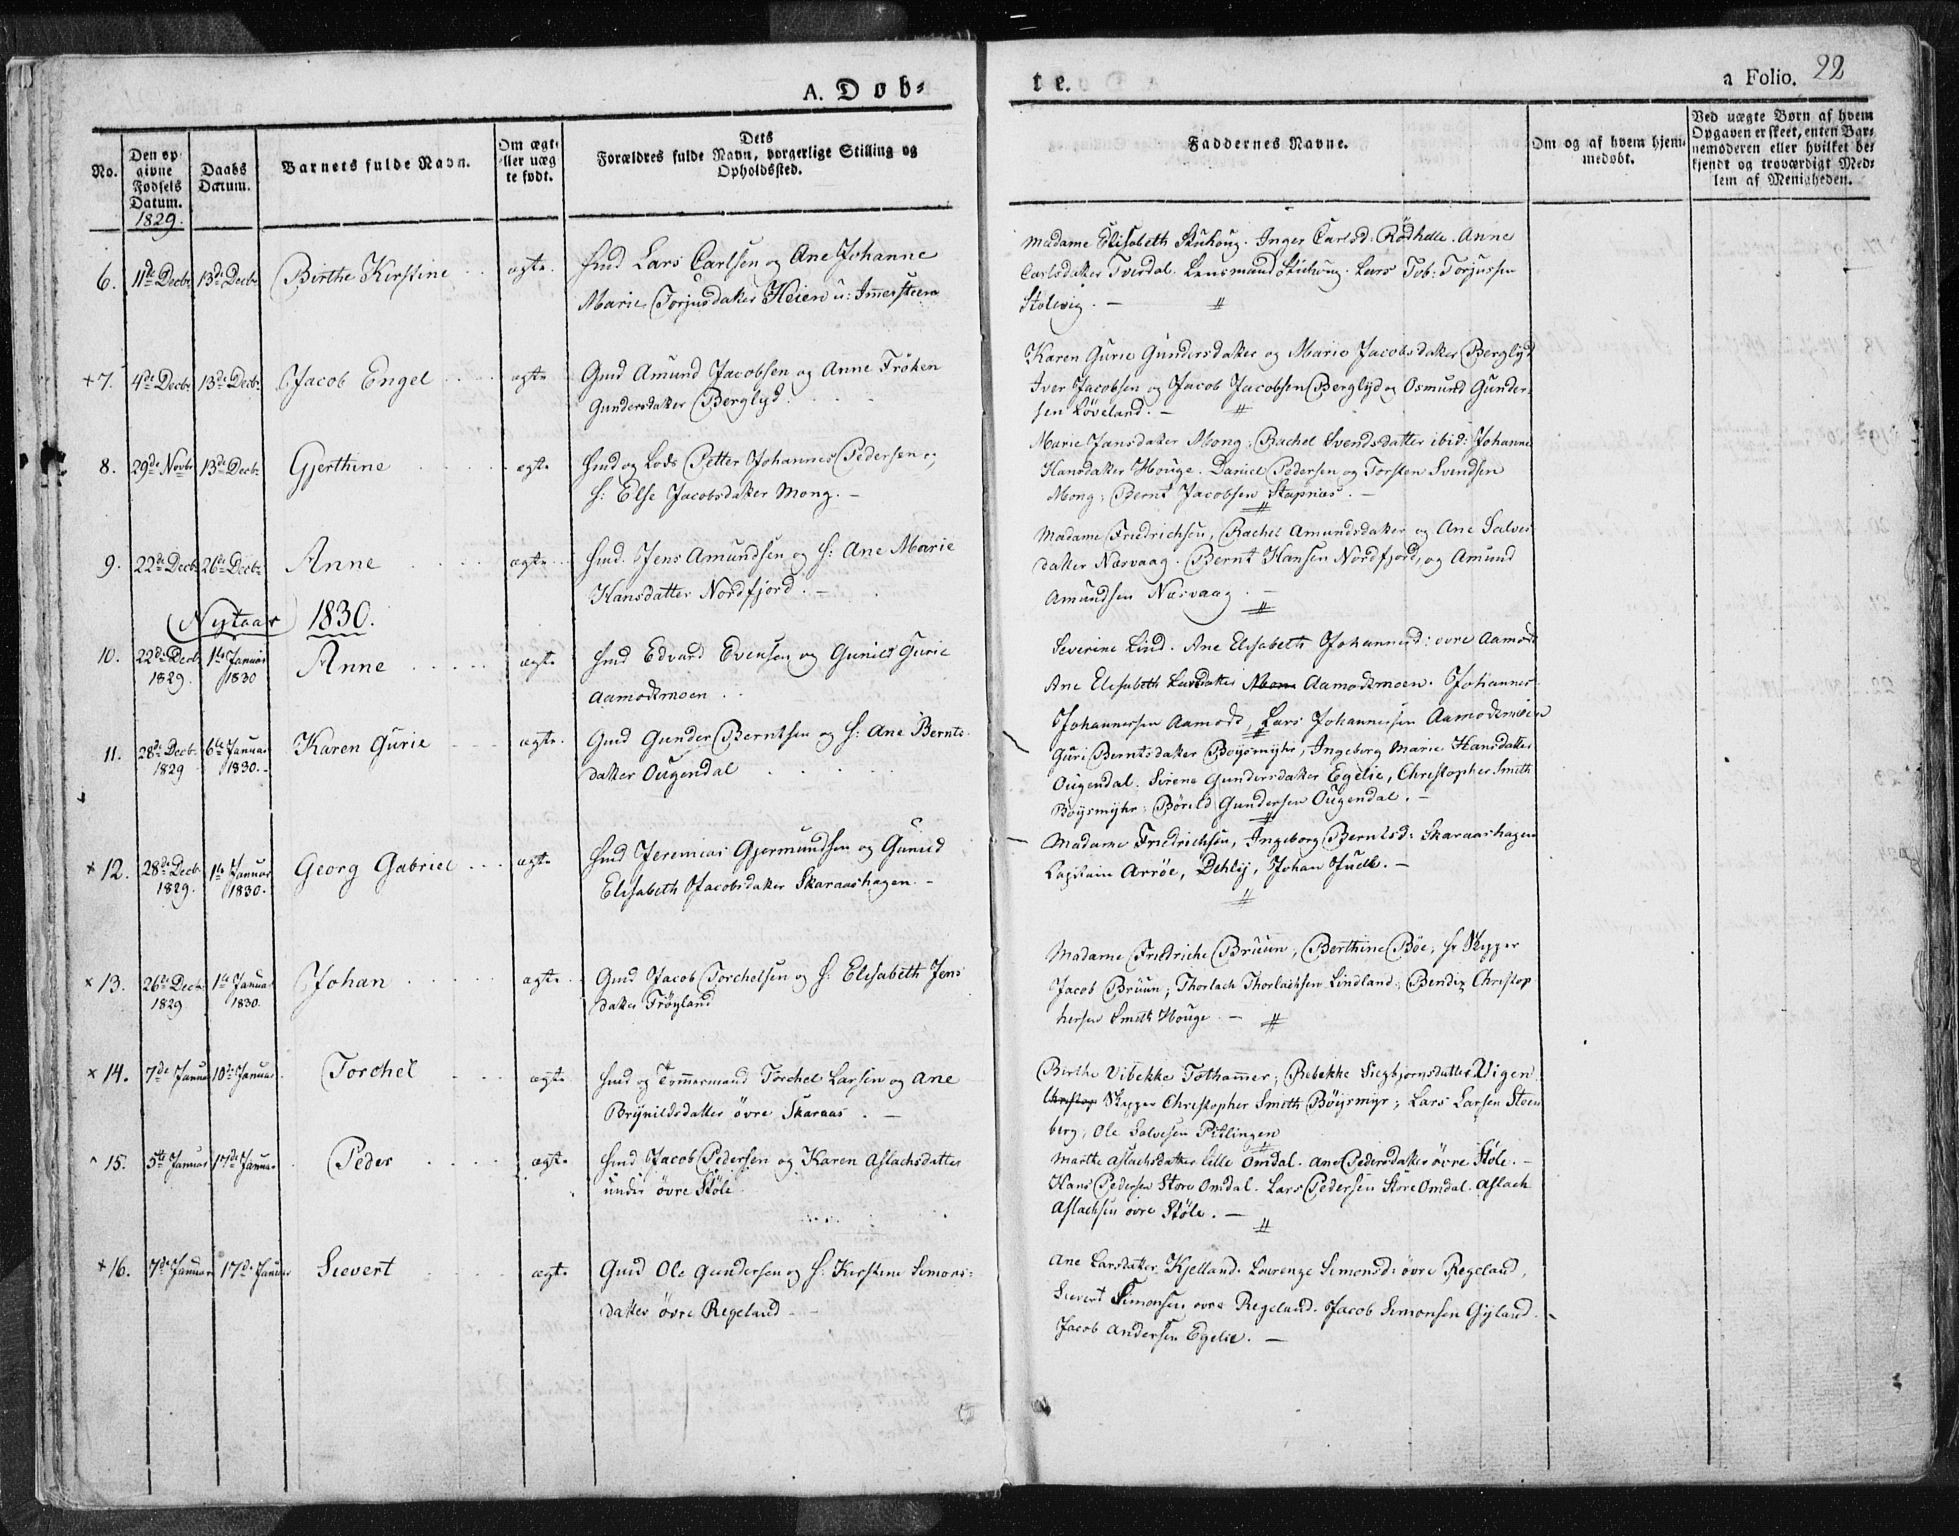 A. Döb-
te.
a Folio. 22
No.
Den op
givne
Fødsels
Datum.
1829.
Daabs
Datum.
Barnets fulde Navn.
Om ægt-
eller uæg
te født.
Dets
Forældres fulde Navn, borgerlige Stilling og
Opholdssted.
Faddernes Navne.
Om og af hvem hjem-
medøbt.
Ved uægte Børn af hvem
Opgaven er skeet, enten Bar-
nemoderen eller hvilket be-
kjendt og troværdigt Med-
lem af Menigheden.
6. 11te Decbr 13de Decbr Birthe Kirstine ægte. Lars Carlsen og Ane Johanne
Marie Torjusdatter Heien u: Immersteen
Madame Elisabeth Inger Carlsd: Rödhelle. Anne
Carlsdatter Tverdal. Lensmand Lars Tob: Torjussen
Stolevig. —
+7. 4de Decbr 13de Decbr Jacob Engel ægte Gmd Amund Jacobsen og Anne Fröken
Gundersdatter Berglyd.
Karen Gurie Gundersdatter og Marie Jacobsdatter Berglyd
Iver Jacobsen og Jacob Jacobsen Berglyd og Osmund Gunder-
sen Löveland. —
8. 29de Novbr 13de Decbr Gjerthine ægte og Lods Petter Johannes Pedersen
h: Else Jacobsdatter Mong. —
Marie Jansdatter Mong; Rachel Svendsdatter ibid: Johanne
Hansdatter Houge. Daniel Pedersen og Torsten Svendsen
Mong; Bernt Jacobsen Stapnæs. —
9. 22de Decb 26de Decbr Anne ægte Jens Amundsen og h: Ane Marie
Hansdatter Nordfjord. —
Madame Friedrichsen, Rachel Amundsdatter og Ane Salves
datter Nærvaag. Bernt Hansen Nordfjord, og Amund
Amundsen Nærvaag. —
Nytaar 1830.
10. 22de Decb 1829. 1te Januar 1830 Anne ægte Edvard Evensen og Gunild Gurie
Aamodtmoen
Severine Lind. Ane Elisabeth Johannesd: övre Aamodt
Ane Elisabeth Larsdatter Aamodtmoen. Johannes
Johannessen Aamodt, Lars Johannessen Aamodtmoen
11. 28de Decb. 1829 6te Januar 1830. Karen Gurie ægte. Gmd Gunder Berntsen og h: Ane Bernts-
datter Ougendal
Guri Berntsdatter Böysmyhr, Ingeborg Marie Hansdatter
Ougendal. Sirene Gundersdatter Egelie, Christopher Smith
Böysmyhr; Böreld Gundersen Ougendal. —
+12. 28de Decb. 1829. 1te Januar 1830. Georg Gabriel ægte Jeremias Gjermundsen og Gunild
Elisabeth Jacobsdatter Skaraashagen. —
Madame Friedrichsen, Ingeborg Berntsd: Skaraashagen
Capitain Arröe, Dehly, Johan Juell. —
×13. 26de Decb. 1829 1te Januar 1830. Johan ægte Gmd Jacob Torchelsen og h: Elisabeth Jens
datter Tröyland
Madame Fredriche Bruun, Berthine Böe, hr Skipper
Jacob Bruun; Thorlach Thorlachsen Lindland; Bendix Christop
hersen Smith Houge. —
×14. 7de Januar 10de Januar Torchel ægte og Tömmermand Torchel Larsen og Ane
Brynildsdatter övre Skaraas. —
Birthe Vibekke Tothammer; Rebekke Siegbjornsdatter Vigen.
Christop Skipper Christopher Smith Böysmyr; Lars Larsen Steen
berg; Ole Salvesen Pitlingen
15. 5te Januar 17de Januar Peder ægte Jacob Pedersen og Karen Aslachsdatter
under övre Stöle
Marthe Aslachsdatter lille Omdal. Ane Pedersdatter övre Stöle. —
Hans Pedersen Store Omdal. Lars Pedersen Store Omdal. Aslach
Aslachsen övre Stöle. —
+16. 7de Januar 17de Januar Sievert ægte Gmd Ole Gundersen og h: Kirstine Simons-
datter övre Regeland —
Ane Larsdatter Kjelland. Lovrenze Simonsd: övre Regeland,
Sievert Simonsen övre Regeland. Jacob Simonsen Gyland.
Jacob Andersen Egelie. —